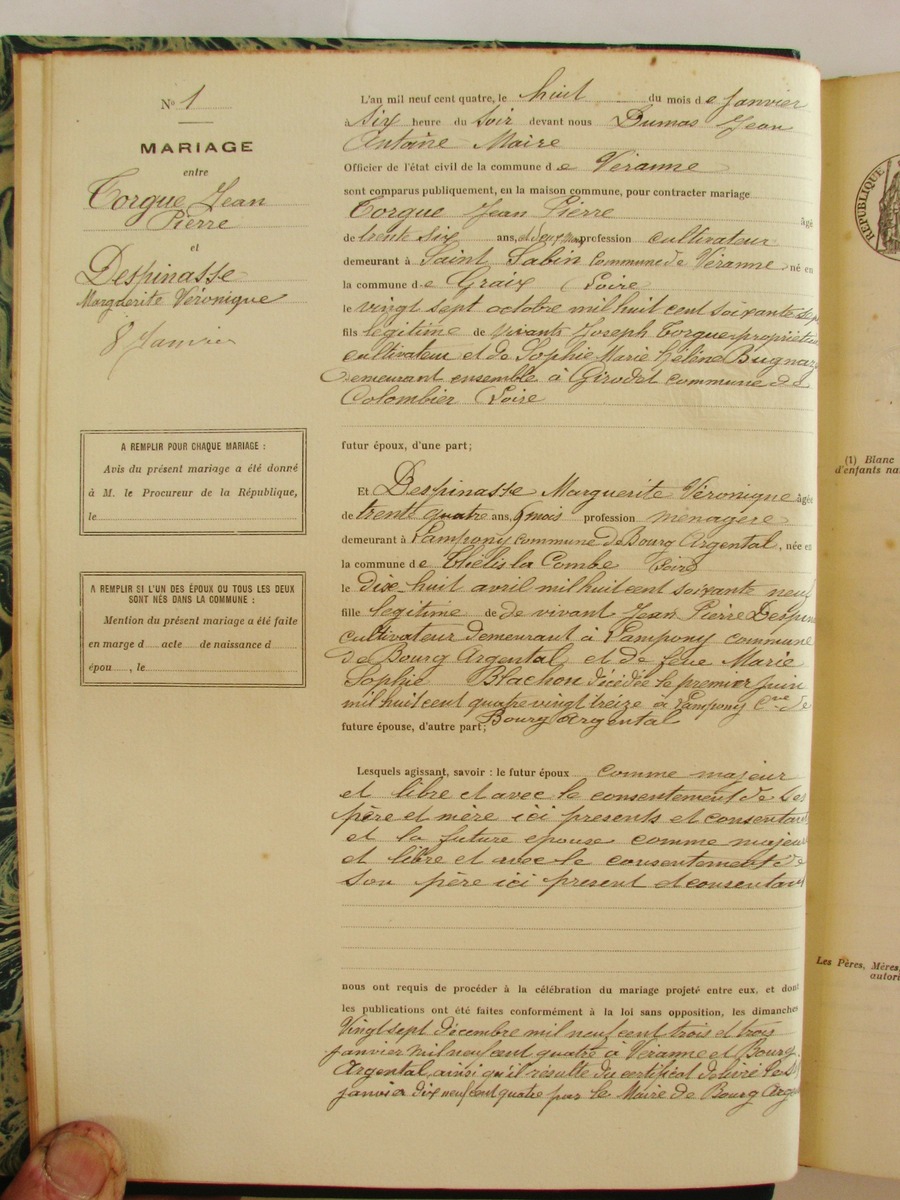 N° 1
MARIAGE
entre
Torgue Jean
Pierre
et
Despinasse
Marguerite Véronique
8 Janvier
A REMPLIR POUR CHAQUE MARIAGE :
Avis du présent mariage a été donné
à M. le Procureur de la République,
le
A REMPLIR SI L'UN DES ÉPOUX OU TOUS LES DEUX
SONT NÉS DANS LA COMMUNE :
Mention du présent mariage a été faite
en marge d acte de naissance d
épou , le
L'an mil neuf cent quatre, le huit du mois de Janvier
à Six heure du Soir devant nous Dumas Jean
Antoine Maire
Officier de l'état civil de la commune de Véranne
sont comparus publiquement, en la maison commune, pour contracter mariage
Torgue Jean Pierre âgé
de trente six ans, et deux mois profession cultivateur
demeurant à Saint Sabin Commune de Véranne né en
la commune de Graix (Loire
le vingt sept octobre mil huit cent soixante sept
fils légitime de vivants Joseph Torgue propriétaire
cultivateur et de Sophie Marie Hélène Bugnaz
Demeurant ensemble à Girodet commune de
Colombier (Loire
futur époux, d'une part;
Et Despinasse Marguerite Véronique âgée
de trente quatre ans, 9 mois profession ménagère
demeurant à Lampony commune de Bourg Argental, née en
la commune de Thélis la Combe (Loire
le dix-huit avril mil huit cent soixante neuf
fille légitime de de vivant Jean Pierre Despin
cultivateur demeurant à Lampony commune
de Bourg Argental et de feue Marie
Sophie Blachon décédée le premier juin
mil huit cent quatre vingt treize à Lampony Cne de
Bourg Argental
future épouse, d'autre part;
Lesquels agissant, savoir : le futur époux comme majeur
et libre et avec le consentement de Ses
père et mère ici présents et consentant
et la future épouse comme majeure
et libre et avec le consentement de
Son père ici présent et consentant
nous ont requis de procéder à la célébration du mariage projeté entre eux, et dont
les publications ont été faites conformément à la loi sans opposition, les dimanches
Vingt sept décembre mil neuf cent trois et trois
janvier mil neuf cent quatre à Véranne et Bourg
Argental, ainsi qu'il résulte du certificat délivré le
janvier dix neuf cent quatre par le Maire de Bourg Argen
RÉPUBLIQUE
(1) Blanc
d'enfants na
Les Pères, Mères,
autori